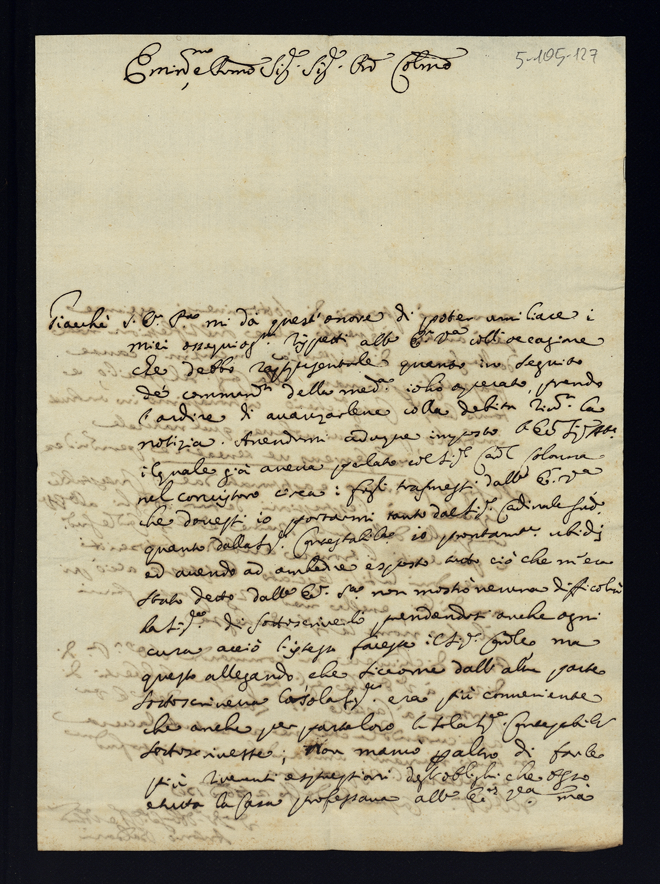 Emin.mo e R.mo Sig.r Sig.r Pron Colmo
5-105-127
Giacchè V.ra Em.za mi dà quest'onore di poter umiliare i
miei ossequiosi rispetti all'E.za V.ra coll'occasione
che debbo rappresentarle quanto in seguito
de' comandi della med.ma io ho operato, prendo
l'ardire di avanzarlene colla debita riv.za la
notizia. Avendomi adunque imposto
il quale già aveva parlato col Sig.r Card.l Colonna
nel concistoro circa i fogli trasmessi dall'E.za V.ra
che dovessi io portarmi tanto dal Sig.r Cardinale
quanto dalla Sig.ra Contestabile io prontam.te ubidij
ed avendo ad ambedue esposto tutto ciò che m'era
stato detto dall'Em.za Sua non mostrò veruna difficoltà
la Sig.ra di sottoscriverlo prendendosi anche ogni
cura acciò l'istesso facesse il Sig.r Card.le ma
questo allegando che siccome dall'altra parte
sottoscriveva la sola Sig.ra era più conveniente
che anche per parte loro la sola Sig.ra Contestabile
sottoscrivesse; Non mancò p altro di farle
più viventi espressioni degl'oblighi che esso
e tutta la Casa professava all'E.za V.ra mà